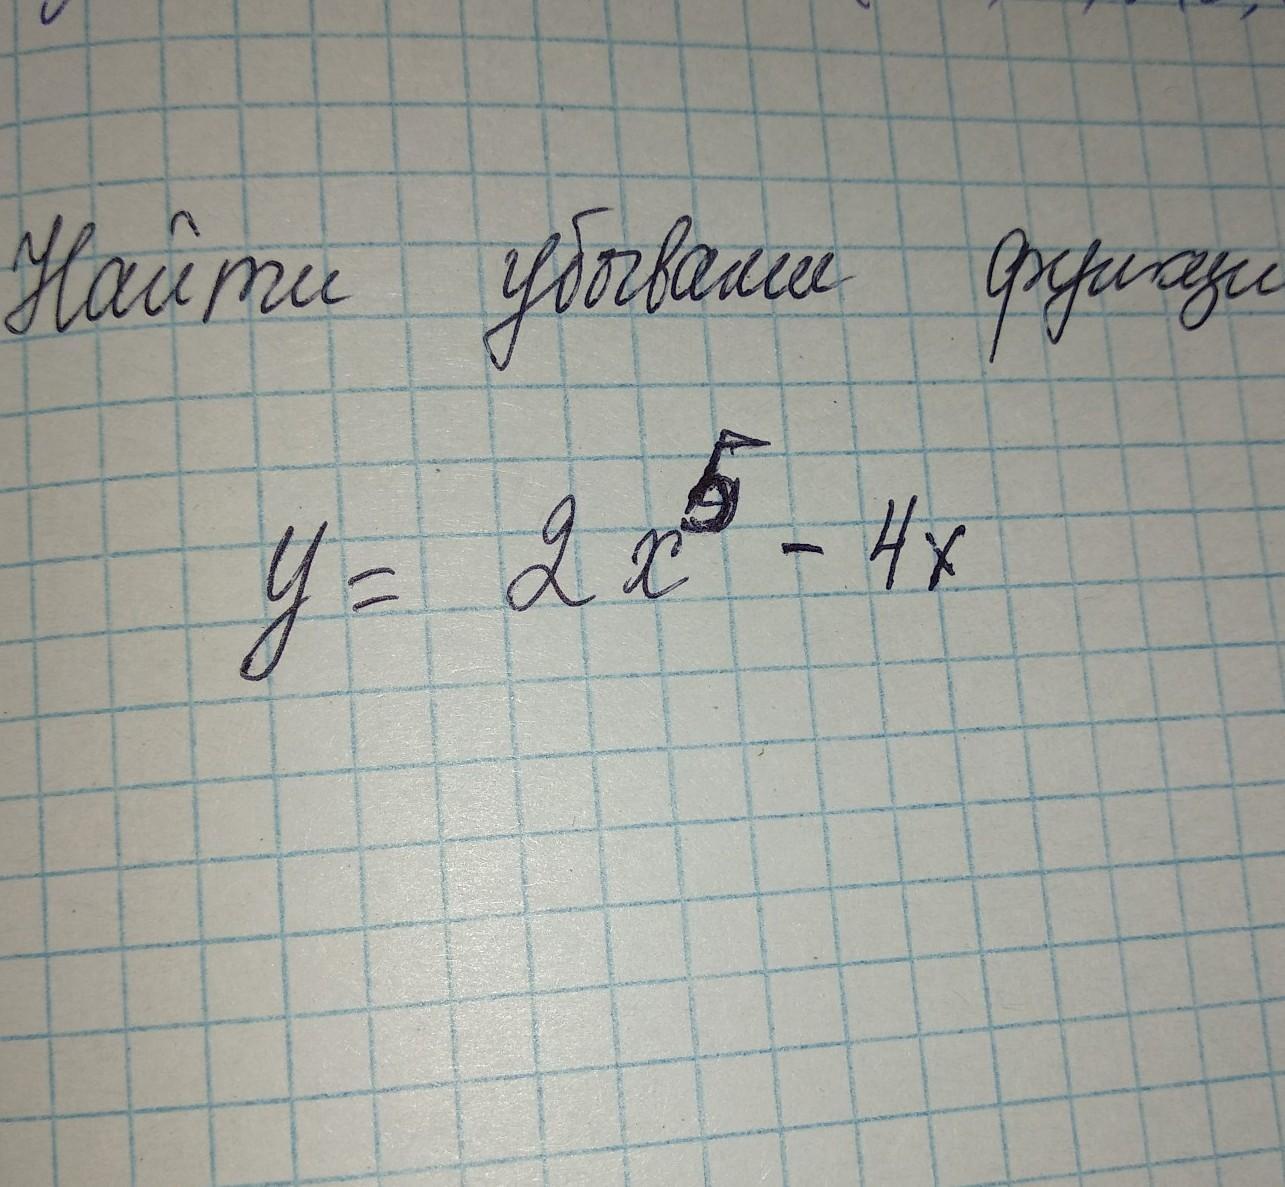 Найти убывами функци
y = 2x⁵ - 4x